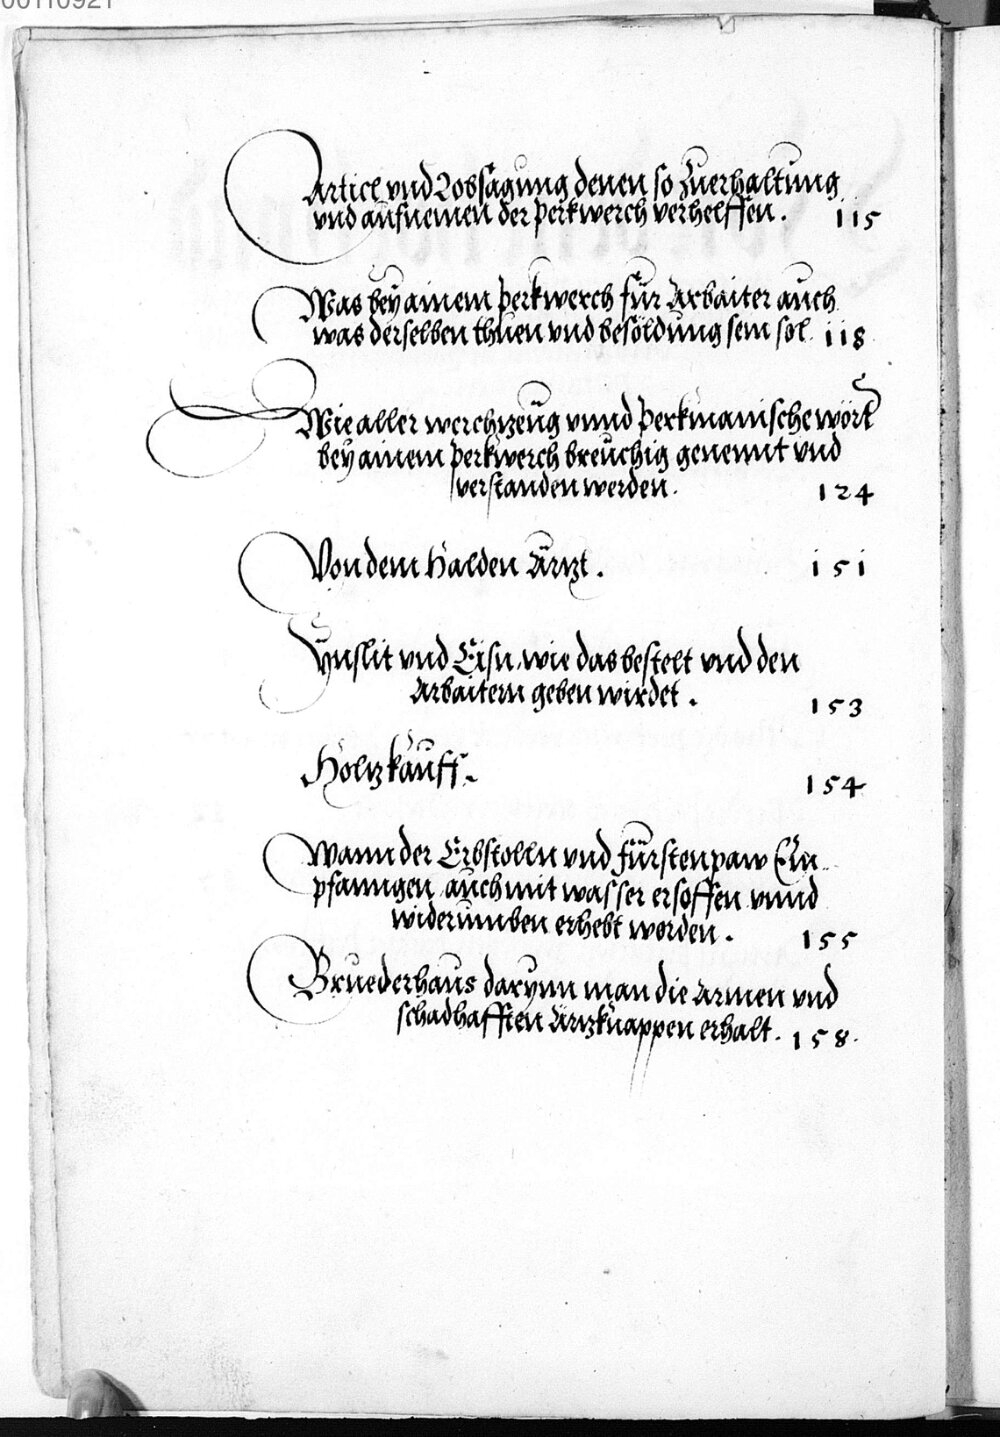 Articl vnd Lobsagung denen so zuerhaltung
vnd aufnemen der perkwerch verhelffen. 115
Was bey ainem perkwerch für Arbaiter auch
was derselben thuen vnd besoldung sein sol. 118
Wie aller werchzeüg vnnd perkmanische wört
bey ainem perkwerch breuchig genennt vnd
verstanden werden. 124
Von dem Halden Ärtzt. 151
Ynslit vnd Eisn, wie das bestelt vnd den
Arbaitern geben wirdet. 153
Holtzkauff. 154
Wann der Erbstolln vnd fürstenpaw
pfanngen, auch mit wasser ersoffen vnnd
widerumben erhebt worden. 155
Bruederhaus darynn man die Armen vnd
schadhafften Ärtzknappen erhalt. 158.